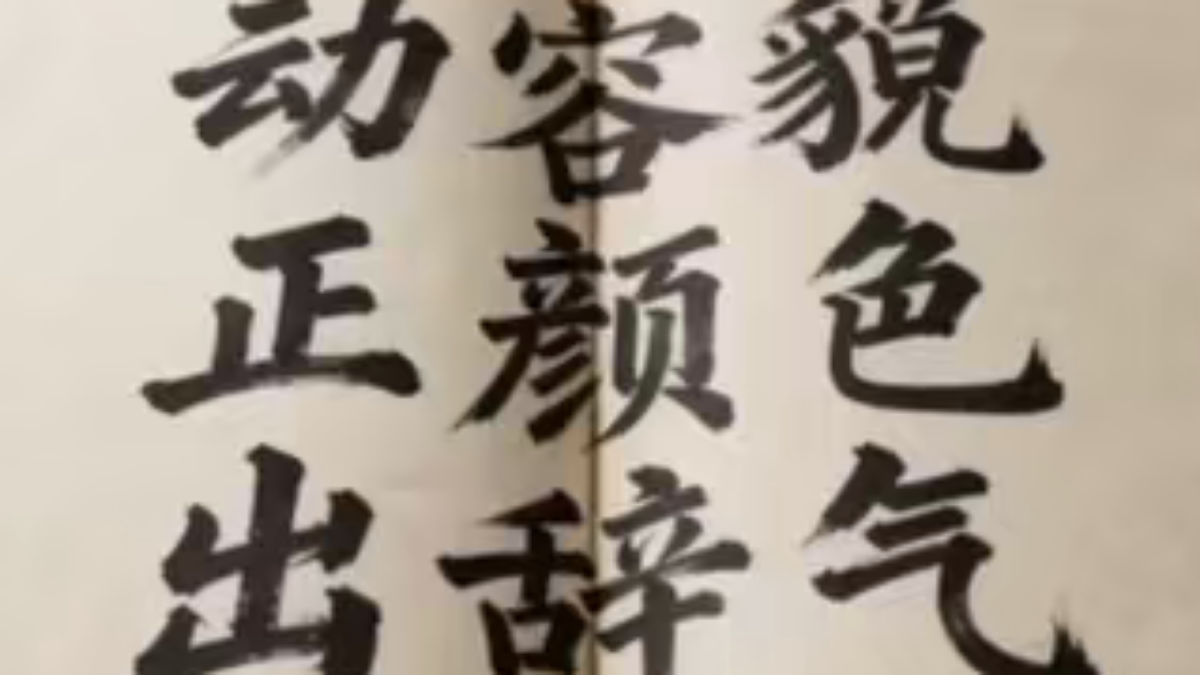 动容貌
正颜色
出辞气